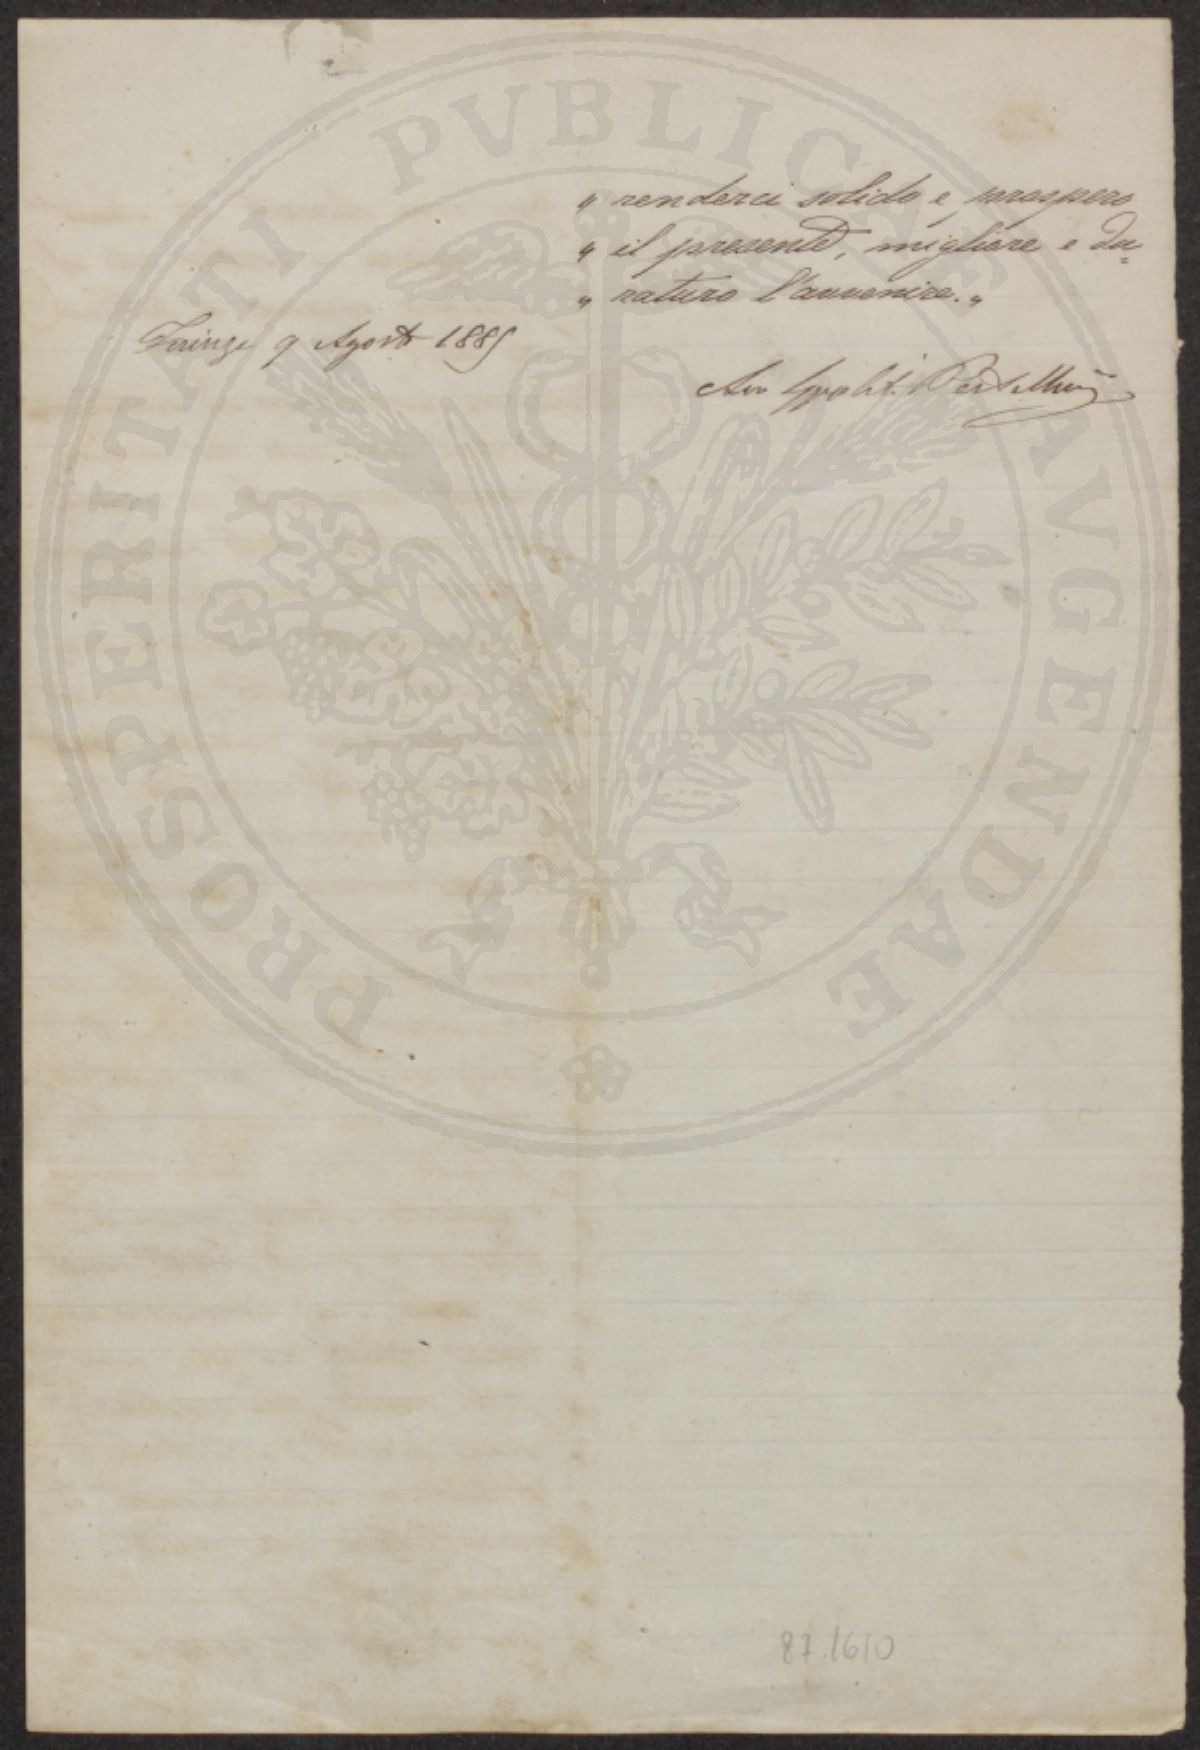 „ renderci solido e prospero
„ il presente, migliore e du=
„ raturo l'avvenire. „
Firenze 9 Agosto 1885
Avv Ippolit.
87.1610
PROSPERITATI PVBLICAE AVGENDAE